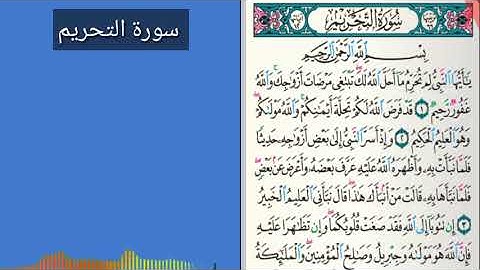 سورة التحريم
سُورَةُ التَّحْرِيمِ
بِسْمِ اللَّهِ الرَّحْمَٰنِ الرَّحِيمِ
يَٰٓأَيُّهَا ٱلنَّبِيُّ لِمَ تُحَرِّمُ مَآ أَحَلَّ ٱللَّهُ لَكَ تَبْتَغِي مَرْضَاتَ أَزْوَٰجِكَ وَٱللَّهُ
غَفُورٌ رَّحِيمٌ ١ قَدْ فَرَضَ ٱللَّهُ لَكُمْ تَحِلَّةَ أَيْمَٰنِكُمْ وَٱللَّهُ مَوْلَىٰكُمْ
وَهُوَ ٱلْعَلِيمُ ٱلْحَكِيمُ ٢ وَإِذْ أَسَرَّ ٱلنَّبِيُّ إِلَىٰ بَعْضِ أَزْوَٰجِهِ حَدِيثًا
فَلَمَّا نَبَّأَتْ بِهِ وَأَظْهَرَهُ ٱللَّهُ عَلَيْهِ عَرَّفَ بَعْضَهُ وَأَعْرَضَ عَنۢ بَعْضٍ
فَلَمَّا نَبَّأَهَا بِهِ قَالَتْ مَنْ أَنۢبَأَكَ هَٰذَا قَالَ نَبَّأَنِيَ ٱلْعَلِيمُ ٱلْخَبِيرُ
٣ إِن تَتُوبَآ إِلَى ٱللَّهِ فَقَدْ صَغَتْ قُلُوبُكُمَا وَإِن تَظَٰهَرَا عَلَيْهِ
فَإِنَّ ٱللَّهَ هُوَ مَوْلَىٰهُ وَجِبْرِيلُ وَصَٰلِحُ ٱلْمُؤْمِنِينَ وَٱلْمَلَٰٓئِكَةُ